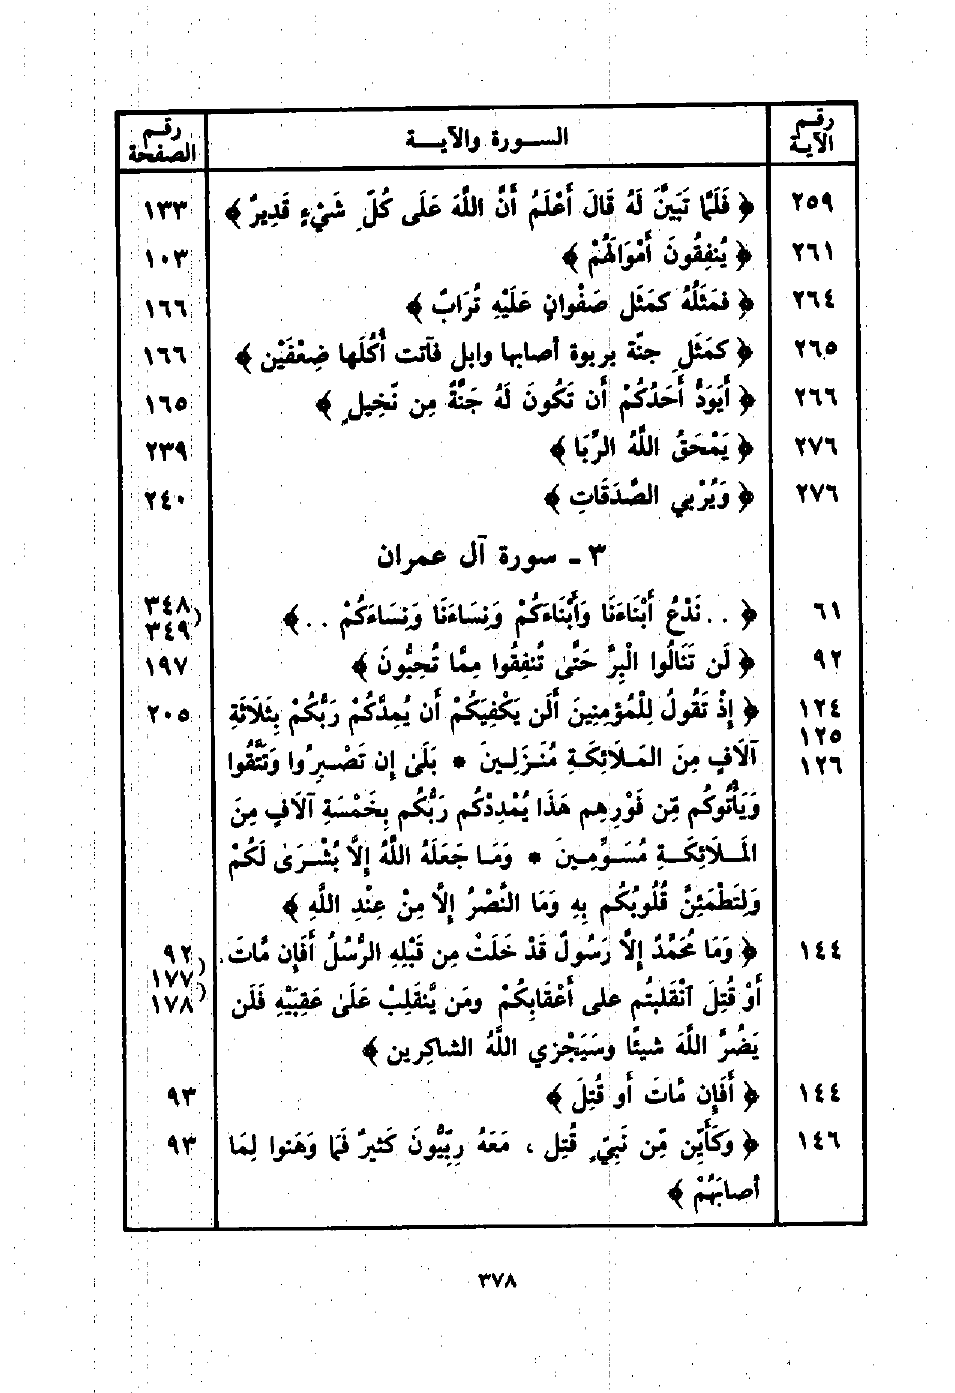 رقم الآية | السورة والآية | رقم الصفحة
٢٥٩ ﴿ فَلَمَّا تَبَيَّنَ لَهُ قَالَ أَعْلَمُ أَنَّ اللَّهَ عَلَى كُلِّ شَيْءٍ قَدِيرٌ ﴾ ١٣٣
٢٦١ ﴿ يُنفِقُونَ أَمْوَالَهُمْ ﴾ ١٠٣
٢٦٤ ﴿ فمَثَلُهُ كمَثَلِ صَفْوانٍ عَلَيْهِ تُرَابٌ ﴾ ١٦٦
٢٦٥ ﴿ كمَثَلِ جنّة بربوة أصابها وابل فآتت أُكُلَها ضِعْفَيْن ﴾ ١٦٦
٢٦٦ ﴿ أَيَوَدُّ أَحَدُكُمْ أَن تَكُونَ لَهُ جَنَّةٌ مِن نَّخِيلٍ ﴾ ١٦٥
٢٧٦ ﴿ يَمْحَقُ اللَّهُ الرِّبَا ﴾ ٢٣٩
٢٧٦ ﴿ وَيُرْبي الصَّدَقَاتِ ﴾ ٢٤٠
٣ ـ سورة آل عمران
٦١ ﴿ . . نَدْعُ أَبْنَاءَنَا وَأَبْنَاءَكُمْ وَنِسَاءَنَا وَنِسَاءَكُمْ . . ﴾ ٣٤٨، ٣٤٩
٩٢ ﴿ لَن تَنَالُوا الْبِرَّ حَتَّى تُنفِقُوا مِمَّا تُحِبُّونَ ﴾ ١٩٧
١٢٤ ﴿ إِذْ تَقُولُ لِلْمُؤمِنِينَ أَلَن يَكْفِيَكُمْ أَن يُمِدَّكُمْ رَبُّكُمْ بِثَلَاثَةِ ٢٠٥
١٢٥ آلَافٍ مِنَ المَلَائِكَةِ مُنَزَلِينَ * بَلَىٰ إِن تَصْبِرُوا وَتَتَّقُوا
١٢٦ وَيَأْتُوكُم مِّن فَوْرِهِم هَذَا يُمْدِدْكُم رَبُّكُم بِخَمْسَةِ آلَافٍ مِنَ
المَلَائِكَةِ مُسَوِّمِينَ * وَمَا جَعَلَهُ اللَّهُ إِلَّا بُشْرَىٰ لَكُمْ
وَلِتَطْمَئِنَّ قُلُوبُكُم بِهِ وَمَا النَّصْرُ إِلَّا مِنْ عِنْدِ اللَّهِ ﴾
١٤٤ ﴿ وَمَا مُحَمَّدٌ إِلَّا رَسُولٌ قَدْ خَلَتْ مِن قَبْلِهِ الرُّسُلُ أَفَإِن مَّاتَ ٩٢،
أَوْ قُتِلَ آنْقَلبتُم على أَعْقَابِكُمْ ومَن يَّنقَلِبْ عَلَىٰ عَقِبَيْهِ فَلَن ١٧٧، ١٧٨
يَضُرَّ اللَّهَ شيئًا وسَيَجْزِي اللَّهُ الشاكِرين ﴾
١٤٤ ﴿ أَفَإِن مَّاتَ أَو قُتِلَ ﴾ ٩٣
١٤٦ ﴿ وَكَأَيِّن مِّن نَبِيٍّ قُتِل ، مَعَهُ رِبِّيُّونَ كَثيرٌ فَمَا وَهَنوا لِمَا ٩٣
أصابَهُمْ ﴾
٣٧٨